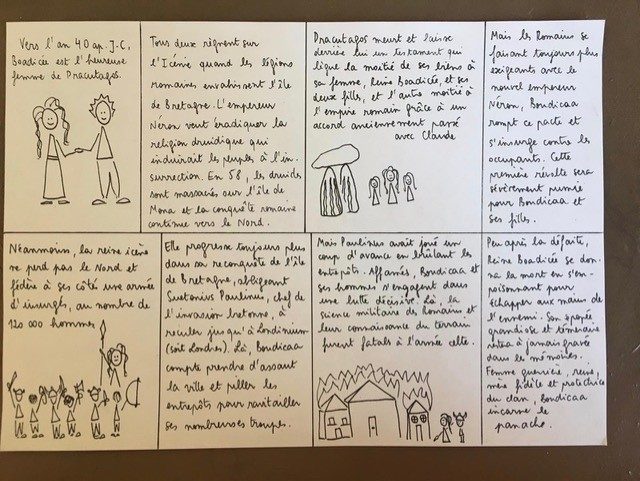 Vers l'an 40 ap. J.C,
Boadicée est l'heureuse
femme de Pracutagos.
Tous deux règnent sur
l'Icénie quand les légions
romaines envahissent l'île
de Bretagne. L'empereur
Néron veut éradiquer la
religion druidique qui
enduirait les peuples à l'in-
surrection. En 58, les druides
sont massacrés sur l'île de
Mona et la conquête romaine
continue vers le Nord.
Pracutagos meurt et laisse
derrière lui un testament qui
lègue la moitié de ses biens à
sa femme, Reine Boadicée, et ses
deux filles, et l'autre moitié à
l'empire romain grâce à un
accord anciennement passé
avec Claude
Mais les Romains se
faisant toujours plus
exigeants avec le
nouvel empereur
Néron, Boudicaa
rompt ce pacte et
s'insurge contre les
occupants. Cette
première révolte sera
sévèrement punie
pour Boudicaa et
ses filles.
Néanmoins, la reine icène
ne perd pas le Nord et
fédère à ses côté une armée
d'insurgés, au nombre de
120 000 hommes
Elle progresse toujours plus
dans sa reconquête de l'île
de Bretagne, obligeant
Suetonius Paulinus, chef de
l'invasion bretonne, à
reculer jusqu'à Londinium
(soit Londres). Là, Boudicaa
compte prendre d'assaut
la ville et piller les
entrepôts pour ravitailler
ses nombreuses troupes.
Mais Paulinus avait joué un
coup d'avance en brûlant les
entrepôts. Affamés, Boudicaa et
ses hommes s'engagent dans
une lutte décisive. Là, la
science militaire des Romains et
leur connaissance du terrain
furent fatals à l'armée celte.
Peu après la défaite,
Reine Boadicée se don-
na la mort en s'em-
poisonnant pour
échapper aux mains de
l'ennemi. Son épopée
grandiose et téméraire
restea à jamais gravée
dans le mémoires.
Femme guerrière, reine,
mère fidèle et protectrice
du clan, Boudicaa
incarne le
panache.